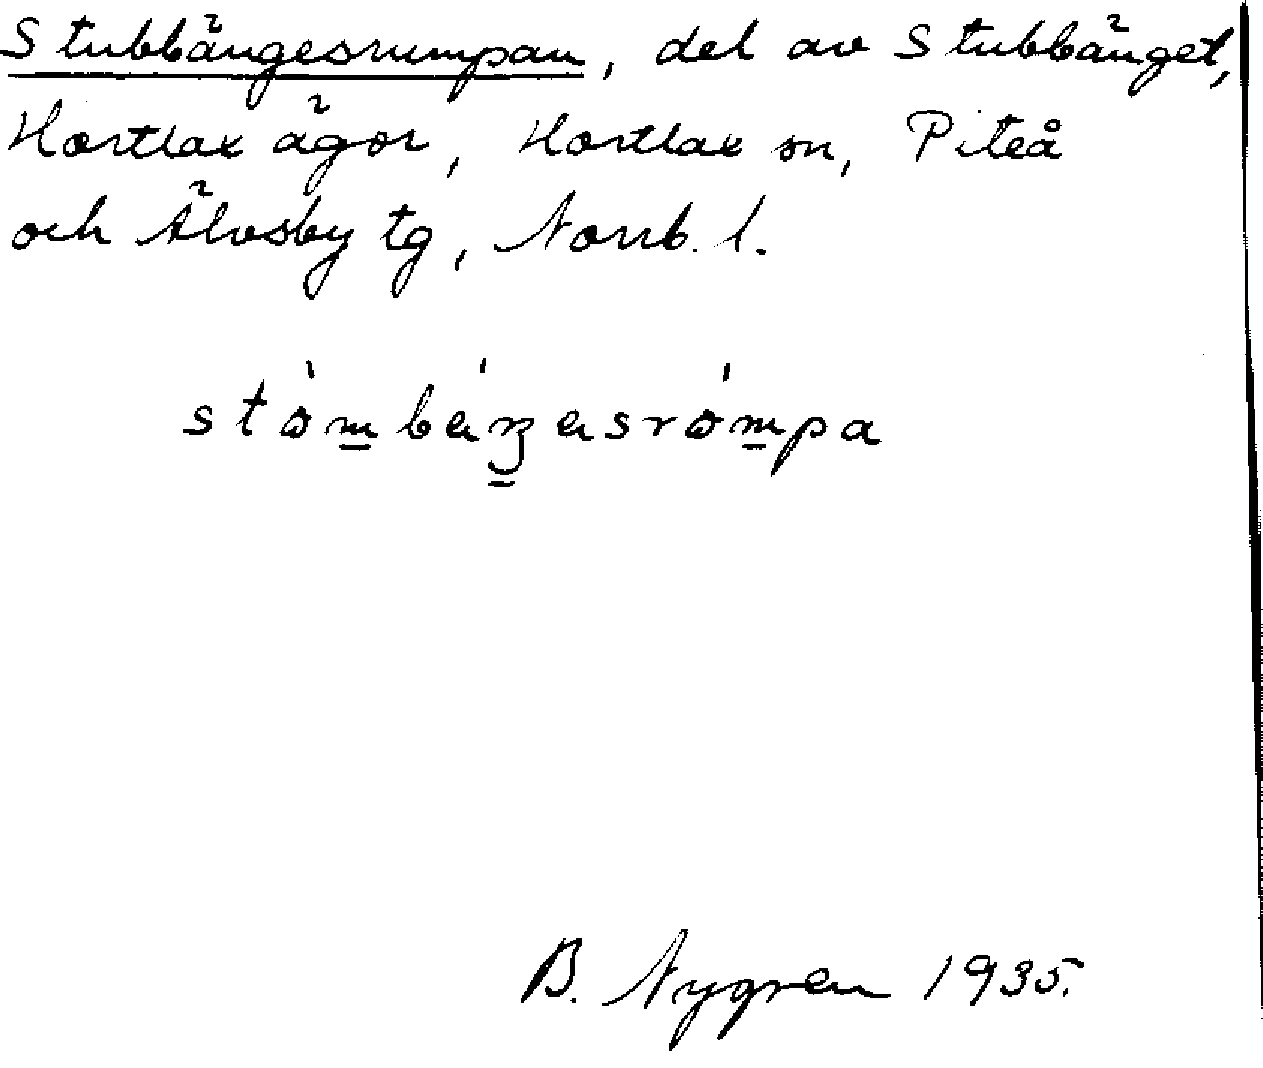 Stubbängesrumpan, del av Stubbänget,
Hortlax ägor, Hortlax sn, Piteå
och Älvsby tg, Norrb. l.
B. Nygren 1935.